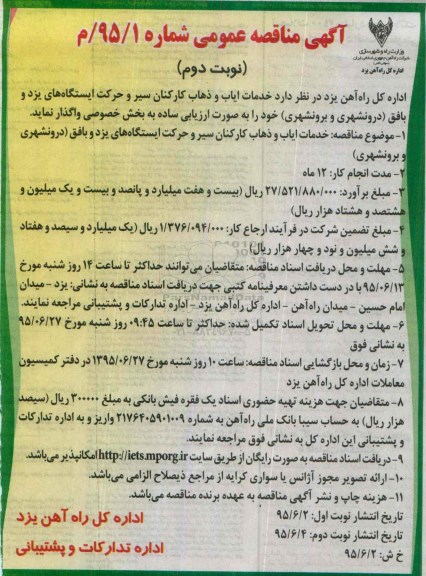 آگهی مناقصه عمومی شماره ۹۵/۱/م
(نوبت دوم)
وزارت راه و شهرسازی
اداره کل راه آهن یزد
اداره کل راه‌آهن یزد در نظر دارد خدمات ایاب و ذهاب کارکنان سیر و حرکت ایستگاه‌های یزد و
بافق (درونشهری و برونشهری) خود را به صورت ارزیابی ساده به بخش خصوصی واگذار نماید.
۱-موضوع مناقصه: خدمات ایاب و ذهاب کارکنان سیر و حرکت ایستگاه‌های یزد و بافق (درونشهری
و برونشهری)
۲- مدت انجام کار: ۱۲ ماه
۳- مبلغ برآورد: ۲۷/۵۲۱/۸۸۰/۰۰۰ ریال (بیست و هفت میلیارد و پانصد و بیست و یک میلیون و
هشتصد و هشتاد هزار ریال)
۴- مبلغ تضمین شرکت در فرآیند ارجاع کار: ۱/۳۷۶/۰۹۴/۰۰۰ ریال (یک میلیارد و سیصد و هفتاد
و شش میلیون و نود و چهار هزار ریال)
۵- مهلت و محل دریافت اسناد مناقصه: متقاضیان می‌توانند حداکثر تا ساعت ۱۴ روز شنبه مورخ
۹۵/۰۶/۱۳ با در دست داشتن معرفینامه کتبی جهت دریافت اسناد مناقصه به نشانی: یزد - میدان
امام حسین - میدان راه‌آهن - اداره کل راه‌آهن یزد - اداره تدارکات و پشتیبانی مراجعه نمایند.
۶- مهلت و محل تحویل اسناد تکمیل شده: حداکثر تا ساعت ۰۹:۴۵ روز شنبه مورخ ۹۵/۰۶/۲۷
به نشانی فوق
۷- زمان و محل بازگشایی اسناد مناقصه: ساعت ۱۰ روز شنبه مورخ ۱۳۹۵/۰۶/۲۷ در دفتر کمیسیون
معاملات اداره کل راه‌آهن یزد
۸- متقاضیان جهت هزینه تهیه حضوری اسناد یک فقره فیش بانکی به مبلغ ۳۰۰۰۰۰ ریال (سیصد
هزار ریال) به حساب سیبا بانک ملی راه‌آهن به شماره ۲۱۷۶۴۰۵۹۰۱۰۰۹ واریز و به اداره تدارکات
و پشتیبانی این اداره کل به نشانی فوق مراجعه نمایند.
۹- دریافت اسناد مناقصه به صورت رایگان از طریق سایت http://iets.mporg.ir امکانپذیر می‌باشد.
۱۰- ارائه تصویر مجوز آژانس یا سواری کرایه از مراجع ذیصلاح الزامی می‌باشد.
۱۱- هزینه چاپ و نشر آگهی مناقصه به عهده برنده مناقصه می‌باشد.
تاریخ انتشار نوبت اول: ۹۵/۶/۲
تاریخ انتشار نوبت دوم: ۹۵/۶/۴
خ ش: ۹۵/۶/۲
اداره کل راه آهن یزد
اداره تدارکات و پشتیبانی